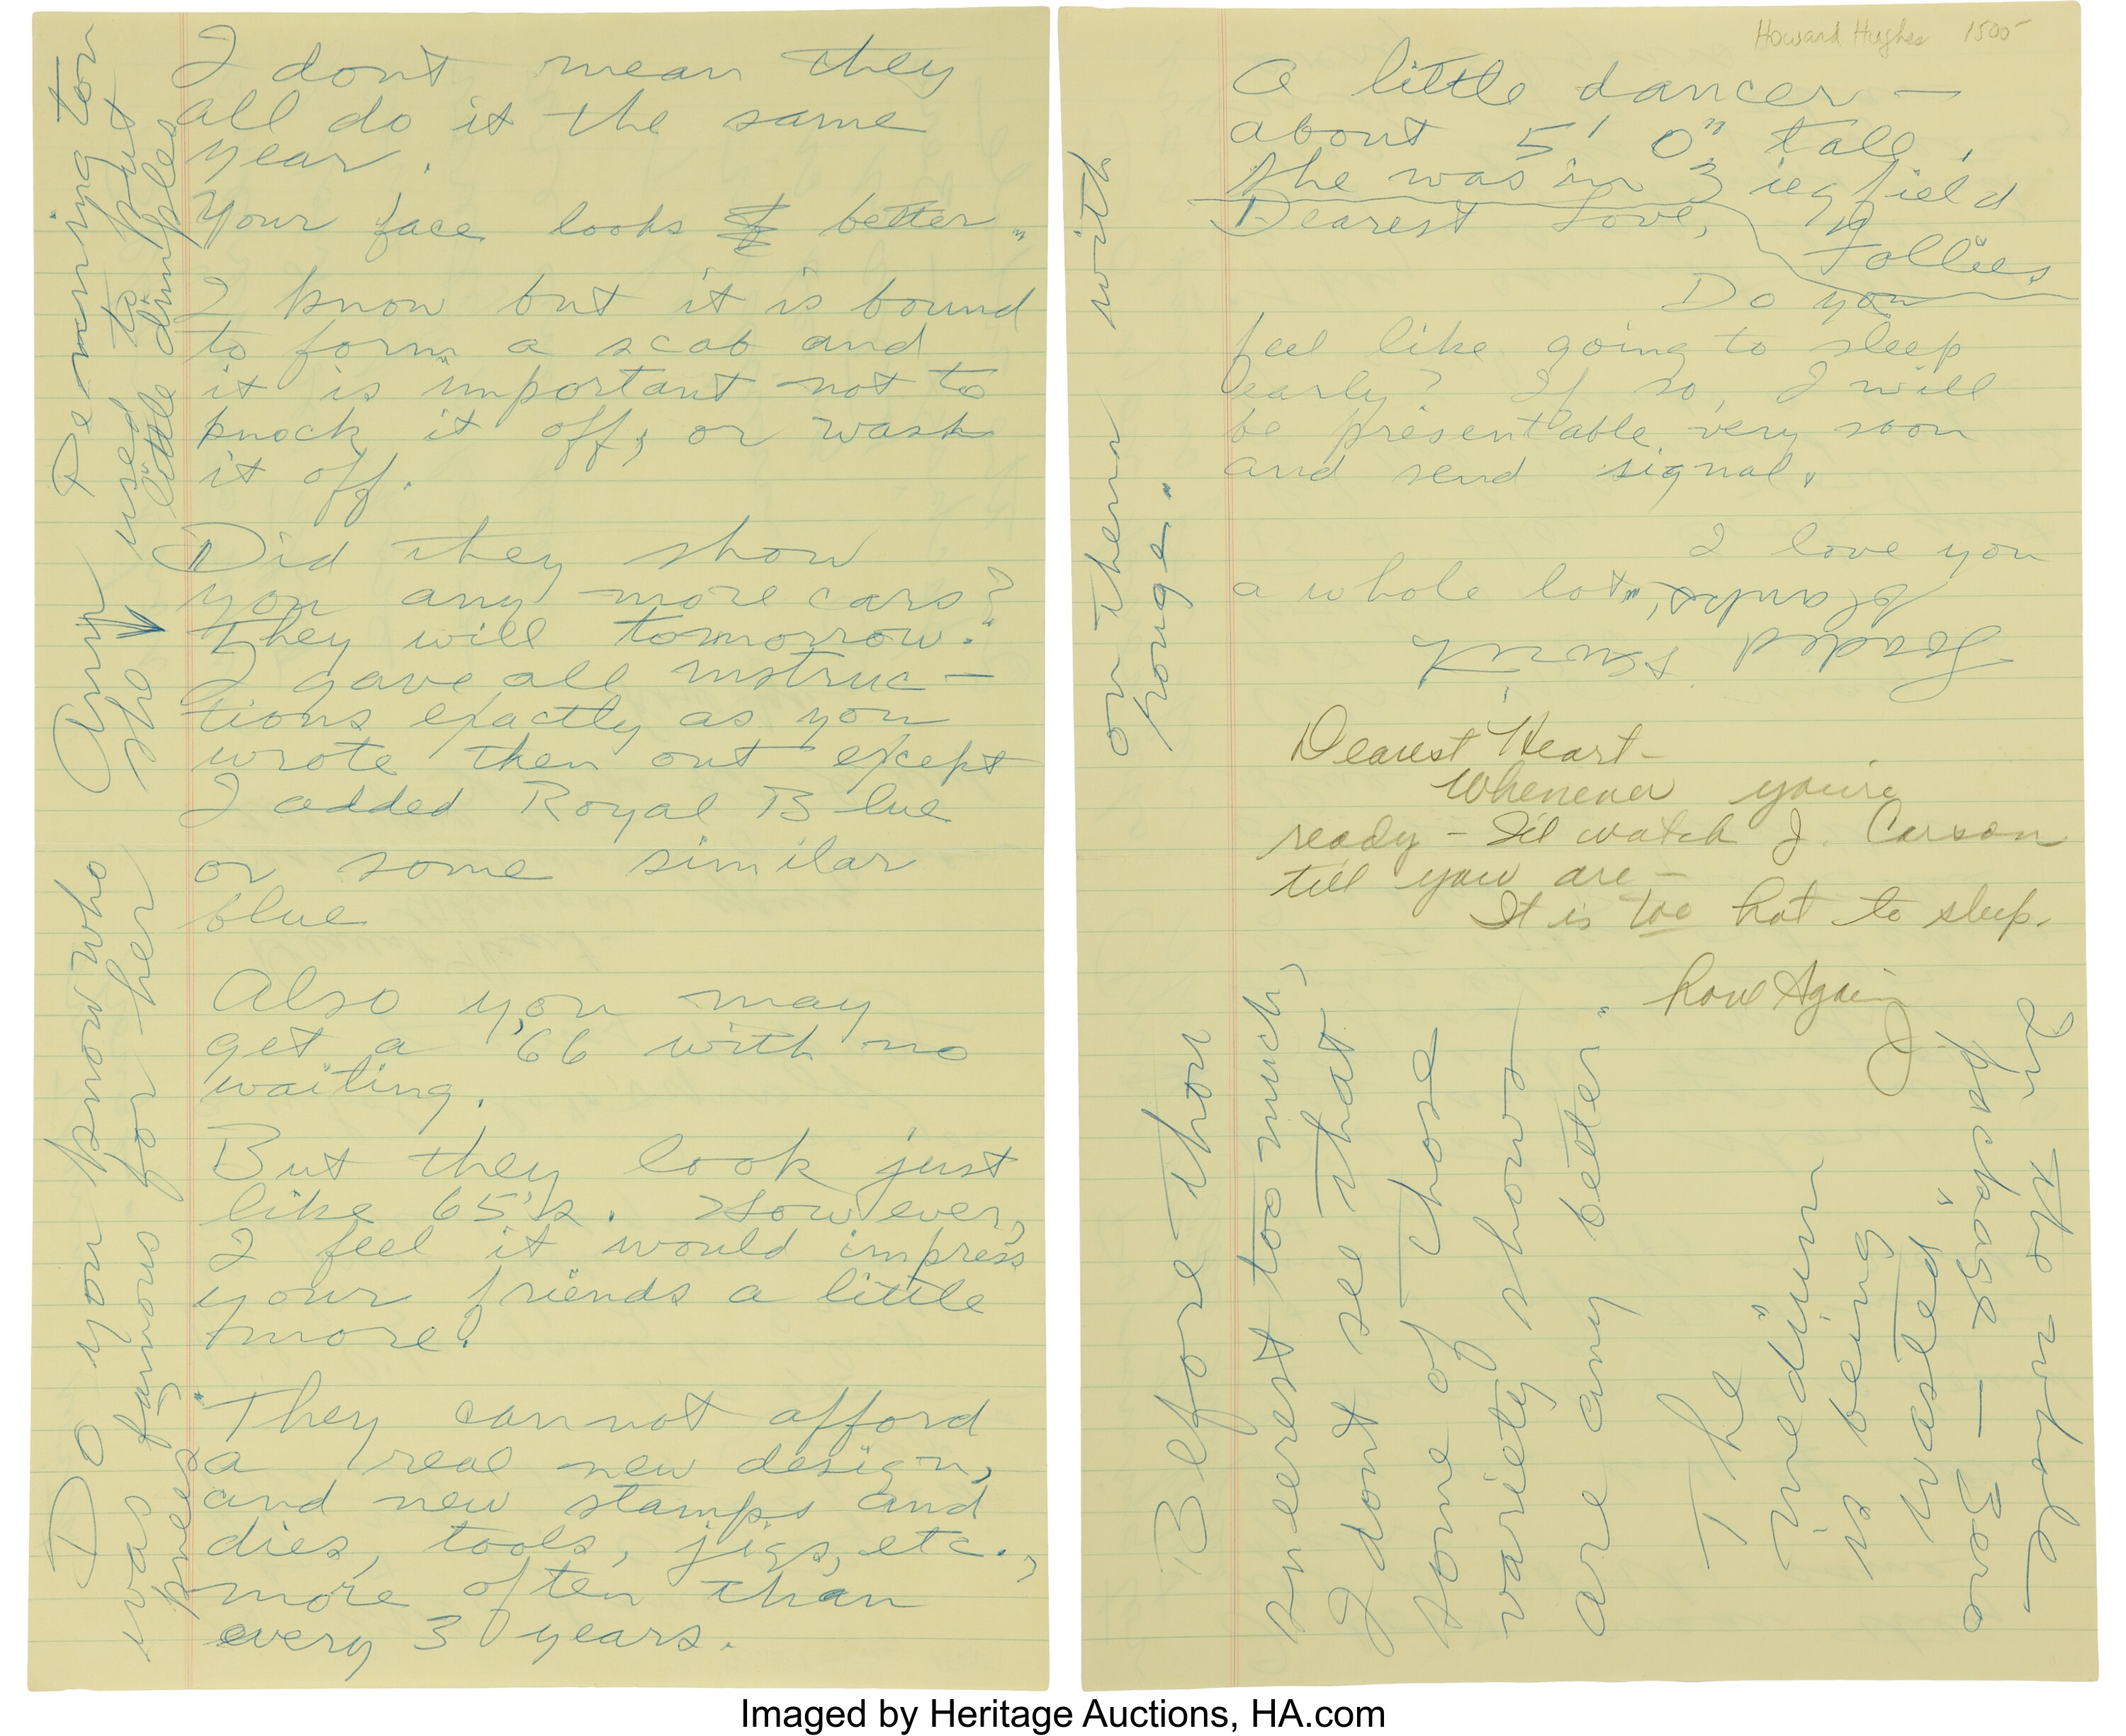 I dont mean they
all do it the same
year.
Your face looks better"
I know but it is bound
to form a scab and
it is important not to
knock it off, or wash
it off.
Did they show
you any more cars?
They will tomorrow."
I gave all instruc-
tions exactly as you
wrote then out except
I added Royal Blue
or some similar
blue
Also you may
get a '66 with no
waiting.
But they look just
like 65's. However,
I feel it would impress
your friends a little
more.
"They cannot afford
a real new design,
and new stamps and
dies, tools, jigs, etc.,
more often than
every 3 years.
Do you know who Ann Pennington
was famous for her
knees
she used to put
little dimples
Howard Hughes 1500-
A little dancer -
about 5' 0" tall,
she was in Ziegfield
Follies
on them with
rouge."
Dearest Love,
Do you
feel like going to sleep
early? If so, I will
be presentable very soon
and send signal.
I love you
a whole lot"
loaded
blanks,
Dearest Heart-
Whenever you're
ready - I'll watch J. Carson
till you are -
It is too hot to sleep.
Love Again
J
Before thou
sneerest too much,
I dont see that
some of those
variety shows
are any better"
The
medium
is being
wasted"